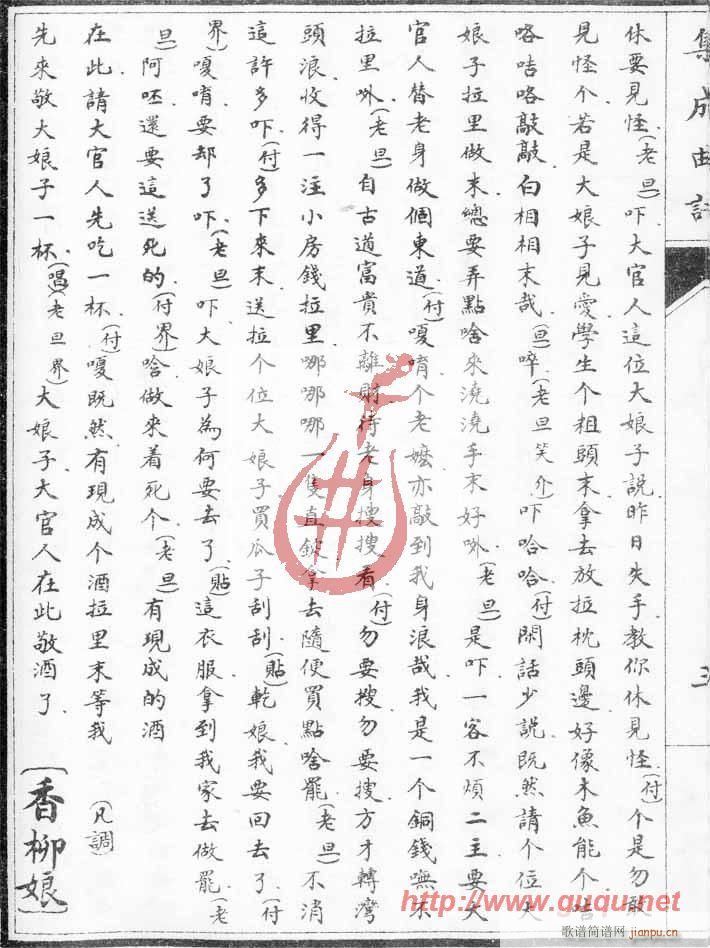 集成曲譜
休要見怪(老旦)吓大官人這位大娘子說昨日失手教你休見怪(付)个是勿敢
見怪个若是大娘子見愛學生个粗頭末拿去放拉枕頭邊好像木魚能个咭
咯咭咯敲敲白相相末哉(旦)啐(老旦笑介)吓哈哈(付)閑話少說既然請个位大
娘子拉里做末總要弄點啥來澆澆手末好㖸(老旦)是吓一客不煩二主要大
官人替老身做個東道(付)嗄唷个老嬷亦敲到我身浪哉我是一个銅錢嘸不
拉里㖸(老旦)自古道富貴不離財待老身搜搜看(付)勿要搜勿要搜方才轉灣
頭浪收得一注小房錢拉里哪哪哪一隻直錠拿去隨便買點啥罷(老旦)不消
這許多吓(付)多下來末送拉个位大娘子買瓜子刮刮(貼)乾娘我要回去了(付
界)嗄唷要却了吓(老旦)吓大娘子為何要去了(貼)這衣服拿到我家去做罷(老
旦)阿呸還要這送死的(付界)啥做來着死个(老旦)有現成的酒
在此請大官人先吃一杯(付)嗄既然有現成个酒拉里末等我
先來敬大娘子一杯(唱)(老旦界)大娘子大官人在此敬酒了
(凡調)
〔香柳娘〕
http://www.guqu.net
歌谱简谱网
jianpu.cn